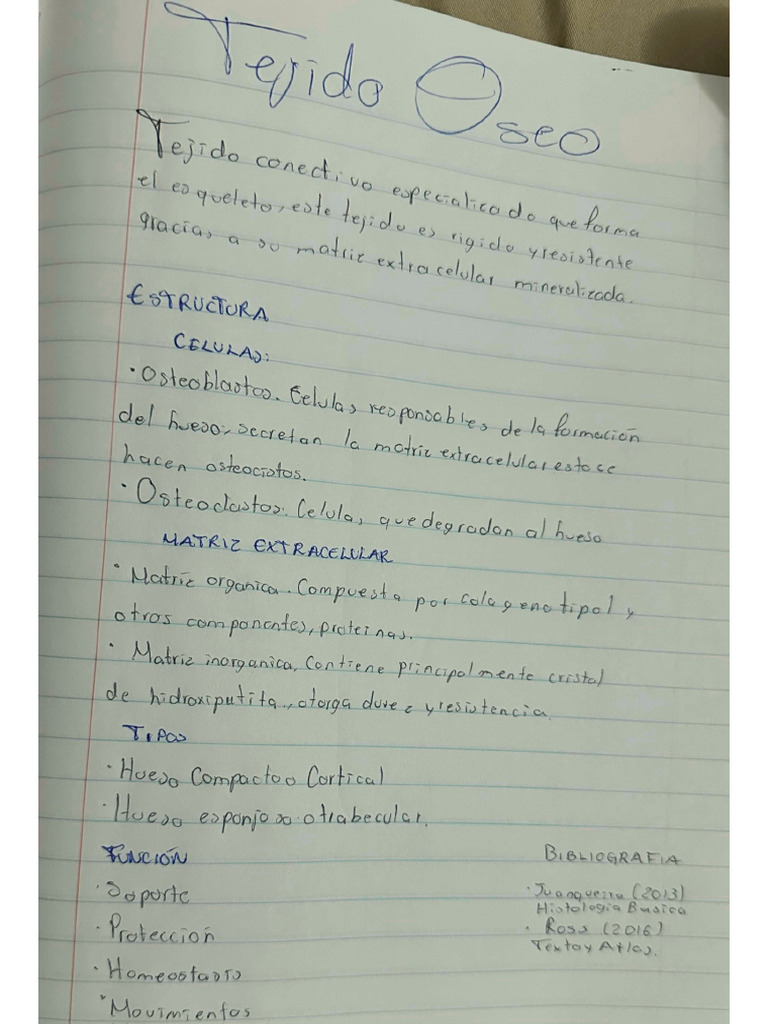 Tejido Oseo
Tejido conectivo especialicado que forma
el esqueleto, este tejido es rigido y resistente
gracias a su matriz extracelular mineralizada.
ESTRUCTURA
CELULAS:
· Osteoblastos. Celulas responsables de la formación
del hueso, secretan la matriz extracelular esto se
hacen osteocistos.
· Osteoclastos. Celulas que degradan al hueso
MATRIZ EXTRACELULAR
· Matriz organica. Compuesta por colageno tipo I y
otros componentes, proteinas.
· Matriz inorganica, Contiene principalmente cristal
de hidroxiputita, otorga durez y resistencia.
TIPOS
· Hueso Compacto o Cortical
· Hueso esponjoso o trabecular.
FUNCIÓN
· Soporte
· Protección
· Homeostasis
· Movimientos
BIBLIOGRAFIA
· Juanqueira (2013)
Histologia Basica
· Ross (2016)
Texto y Atlas.